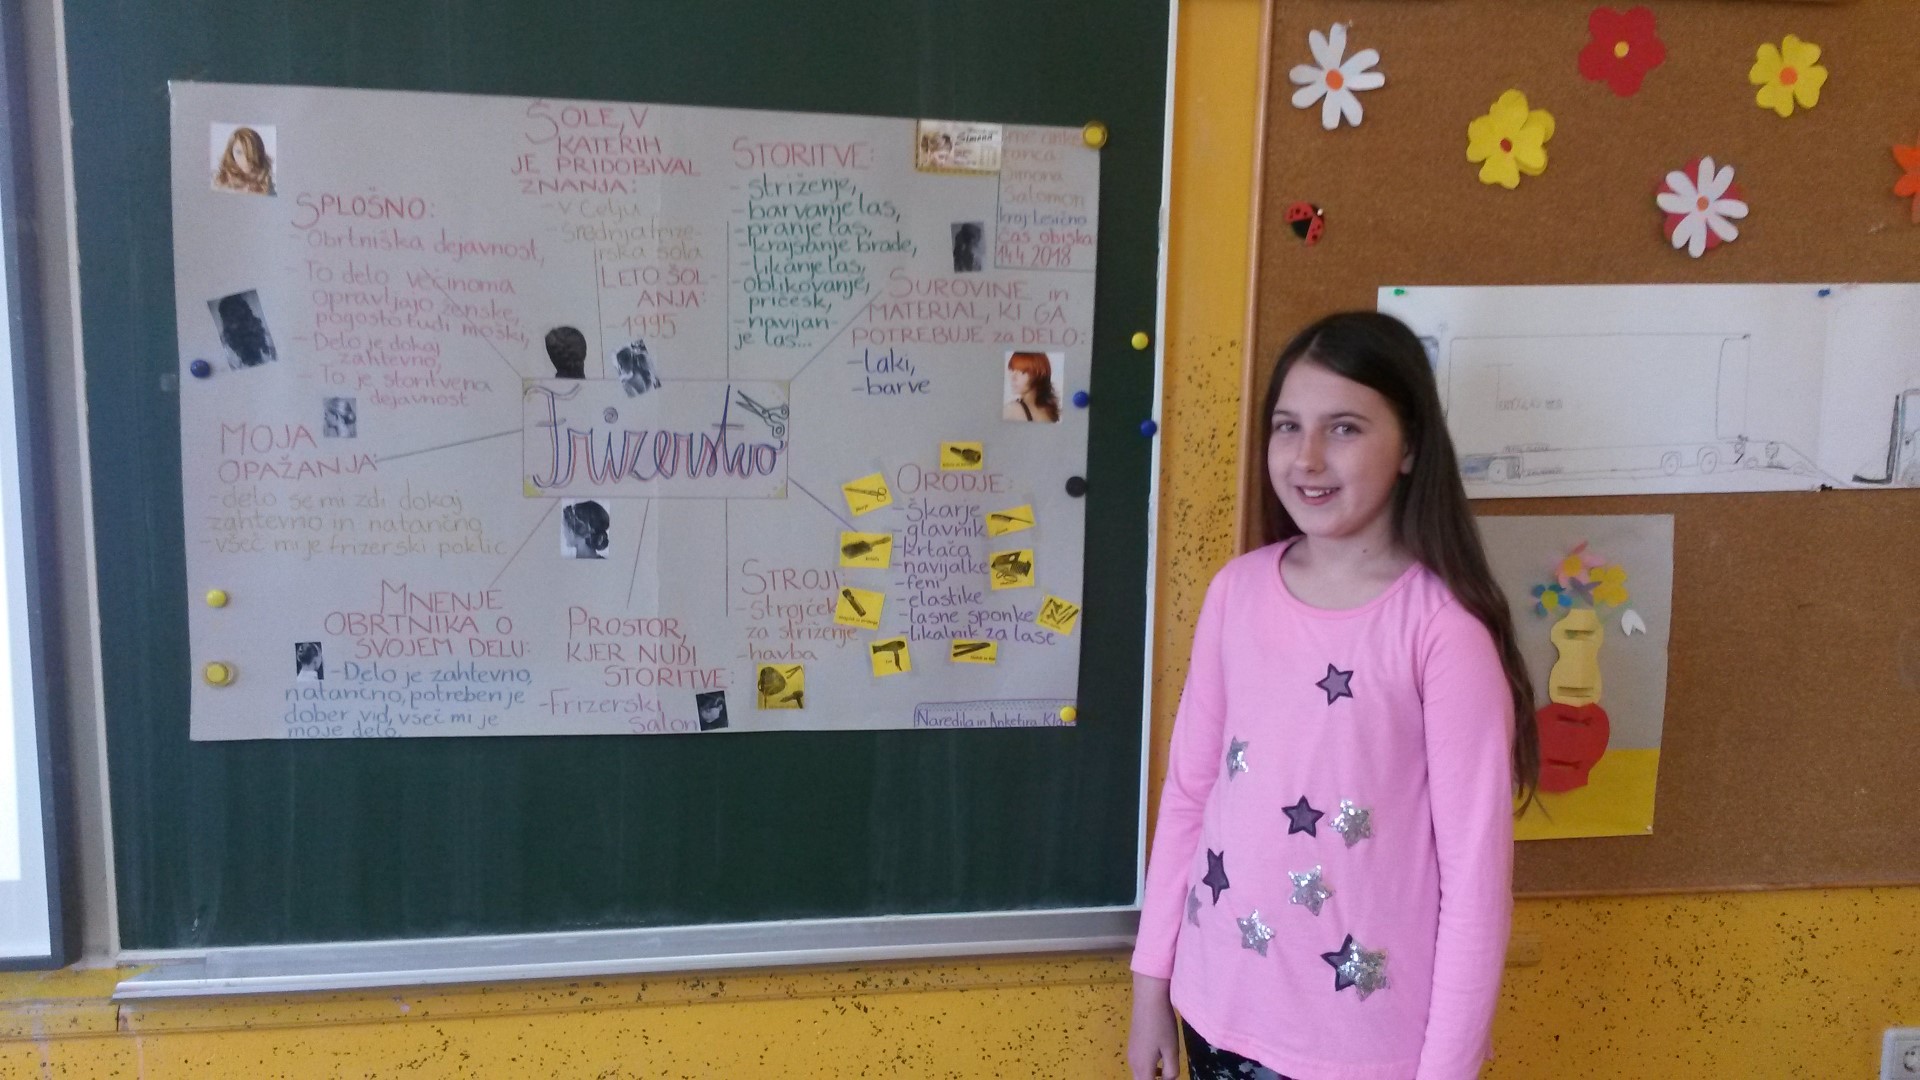 ŠOLE, V
KATERIH
JE PRIDOBIVAL
ZNANJA:
- v Celju
- srednja frize-
rska šola
LETO ŠOL-
ANJA:
- 1995
STORITVE:
- striženje,
- barvanje las,
- pranje las,
- krajšanje brade,
- likanje las,
- oblikovanje,
pričesk,
- navijan-
je las...
Simona
Simona
Salomon
kraj Lesično
čas obiska
14.4.2018
SPLOŠNO:
- Obrtniška dejavnost,
- To delo večinoma
opravljajo ženske,
pogosto tudi moški,
- Delo je dokaj
zahtevno,
- To je storitvena
dejavnost
SUROVINE in
MATERIAL, KI GA
POTREBUJE za DELO:
- laki,
- barve
Frizerstvo
MOJA
OPAŽANJA:
- delo se mi zdi dokaj
zahtevno in natančno
- všeč mi je frizerski poklic
ORODJE:
- škarje
- glavnik
- krtača
- navijalke
- feni
- elastike
- lasne sponke
- likalnik za lase
STROJI:
- strojček
za striženje
- havba
MNENJE
OBRTNIKA O
SVOJEM DELU:
- Delo je zahtevno,
natančno, potreben je
dober vid, všeč mi je
moje delo.
PROSTOR,
KJER NUDI
STORITVE:
- Frizerski
salon
Naredila in Anketira